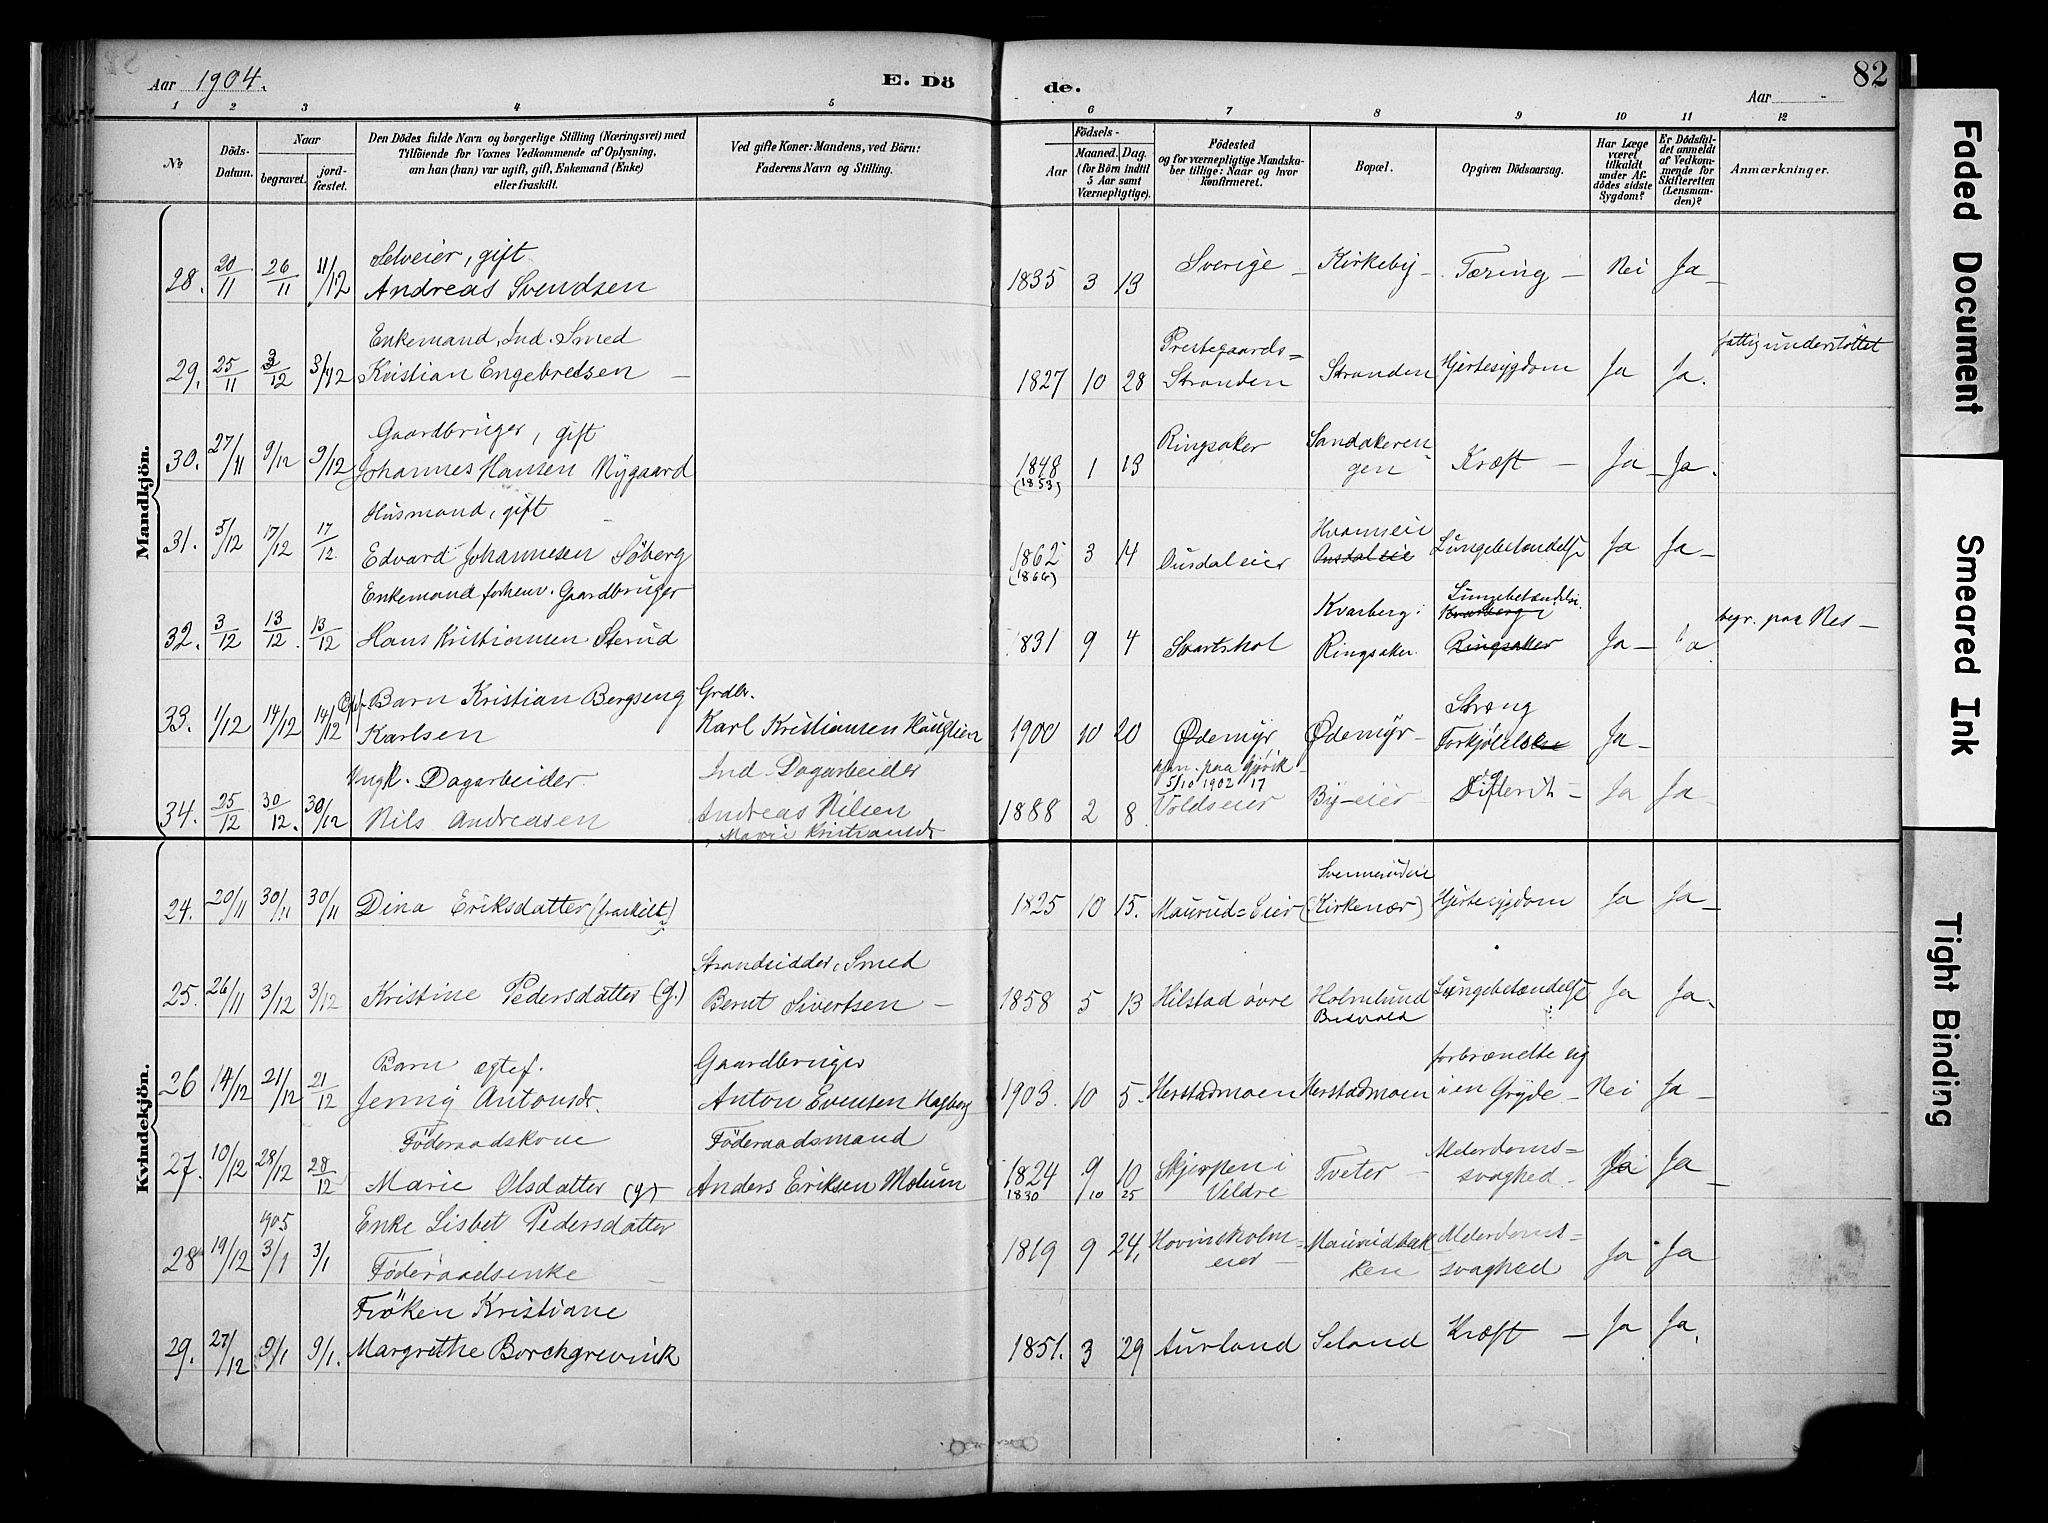 Aar 1904.
E. Dö
de.
Aar
82
1 2 3 4 5 6 7 8 9 10 11 12
No
Döds-Datum.
Naar
begravet.
jordfæstet.
Den Dödes fulde Navn og borgerlige Stilling (Næringsvei) med
Tilföiende for Voxnes Vedkommende af Oplysning,
om han (hun) var ugift, gift, Enkemand (Enke)
eller fraskilt.
Ved gifte Koner: Mandens, ved Börn:
Faderens Navn og Stilling.
Födsels-
Aar
Maaned. Dag.
(for Börn indtil
5 Aar samt
Værnepligtige).
Födested
og for værnepligtige Mandska-
ber tillige: Naar og hvor
konfirmeret.
Bopæl.
Opgiven Dödsaarsag.
Har Læge
været
tilkaldt
under Af-
dödes sidste
Sygdom?
Er Dödsfal-
det anmeldt
af Vedkom-
mende for
Skifteretten
(Lensman-
den)?
Anmærkninger.
Mandkjön.
Selveier, gift
28. 20/11 26/11 11/12 Andreas Svendsen 1835 3 13 Sverige – Kirkeby – Tæring – Nei Ja –
Enkemand, Ind. Smed
29. 25/11 3/12 3/12 Kristian Engebretsen – 1827 10 28 Prestegaards= Stranden Stranden Hjertesygdom Ja Ja. fattigunderstöttet
Gaardbruger, gift
30. 27/11 9/12 9/12 Johannes Hansen Nygaard 1848 (1853) 1 13 Ringsaker Sandakeren gen Kræft – Ja – Ja.
Husmand, gift –
31. 5/12 17/12 17/12 Edvard Johannesen Söberg 1862 (1866) 3 14 Ousdaleier Hvamseie Ousdaleie Lungebetændelse Ja Ja –
Enkemand forhenv. Gaardbruger
32. 3/12 13/12 13/12 Hans Kristiansen Sterud 1831 9 4 Svartskol Kvarberg i Ringsaker. Lungebetændelse. Kvarberg i Ringsaker Ja – Ja begr. paa Nes –
33. 1/12 14/12 14/12 Barn Kristian Bergseng Karlsen Grdbr. Karl Kristiansen Haugtien 1900 10 20 Ödemyr Ödemyr – Streng Forkjölelse Ja –
Ungk. Dagarbeider Ind. Dagarbeider kon. paa Gjövik 5/10 1902 17
34. 25/12 30/12. 30/12 Nils Andreasen Andreas Nilsen Marie Kristiansdr 1888 2 8 Voldseier By-eier Difterit – Ja Ja –
Kvindekjön.
24. 20/11 30/11 30/11 Dina Eriksdatter (fraskilt) 1825 10 15. Maurud=Eier (Kirkenær) Hjertesygdom Ja Ja –
Strandsidder, Smed
25. 26/11 3/12 3/12 Kristine Pedersdatter (g.) Bernt Sivertsen – 1858 5 13 Hilstad övre Holmlund Bredvold Lungebetændelse Ja Ja –
Barn ægtef. Gaardbruger
26 14/12 21/12 21/12 Jenny Antonsdr. Anton Evensen Hagberg 1903. 10 5. Herstadmoen Herstadmoen forbrændte sig i en Gryde – Nei Ja –
Föderaadskone Föderaadsmand
27. 10/12 28/12 28/12 Marie Olsdatter (g) Anders Eriksen Mælum 1824 1830 9/10 10 25 Skjerpen i Veldre Tveter – Alderdoms= svaghed – Ja Ja –
1905
28 19/12 3/1 3/1 Enke Lisbet Pedersdatter Föderaadsenke – 1819 9 24, Hovinsholm= eier – Maurudbakken Alderdoms= svaghed Ja Ja
Fröken Kristiane
29. 27/12 9/1 9/1. Margrethe Borchgrevink 1851. 3 29 Aurland Seland Kræft – Ja Ja.
Faded Document
Smeared Ink
Tight Binding